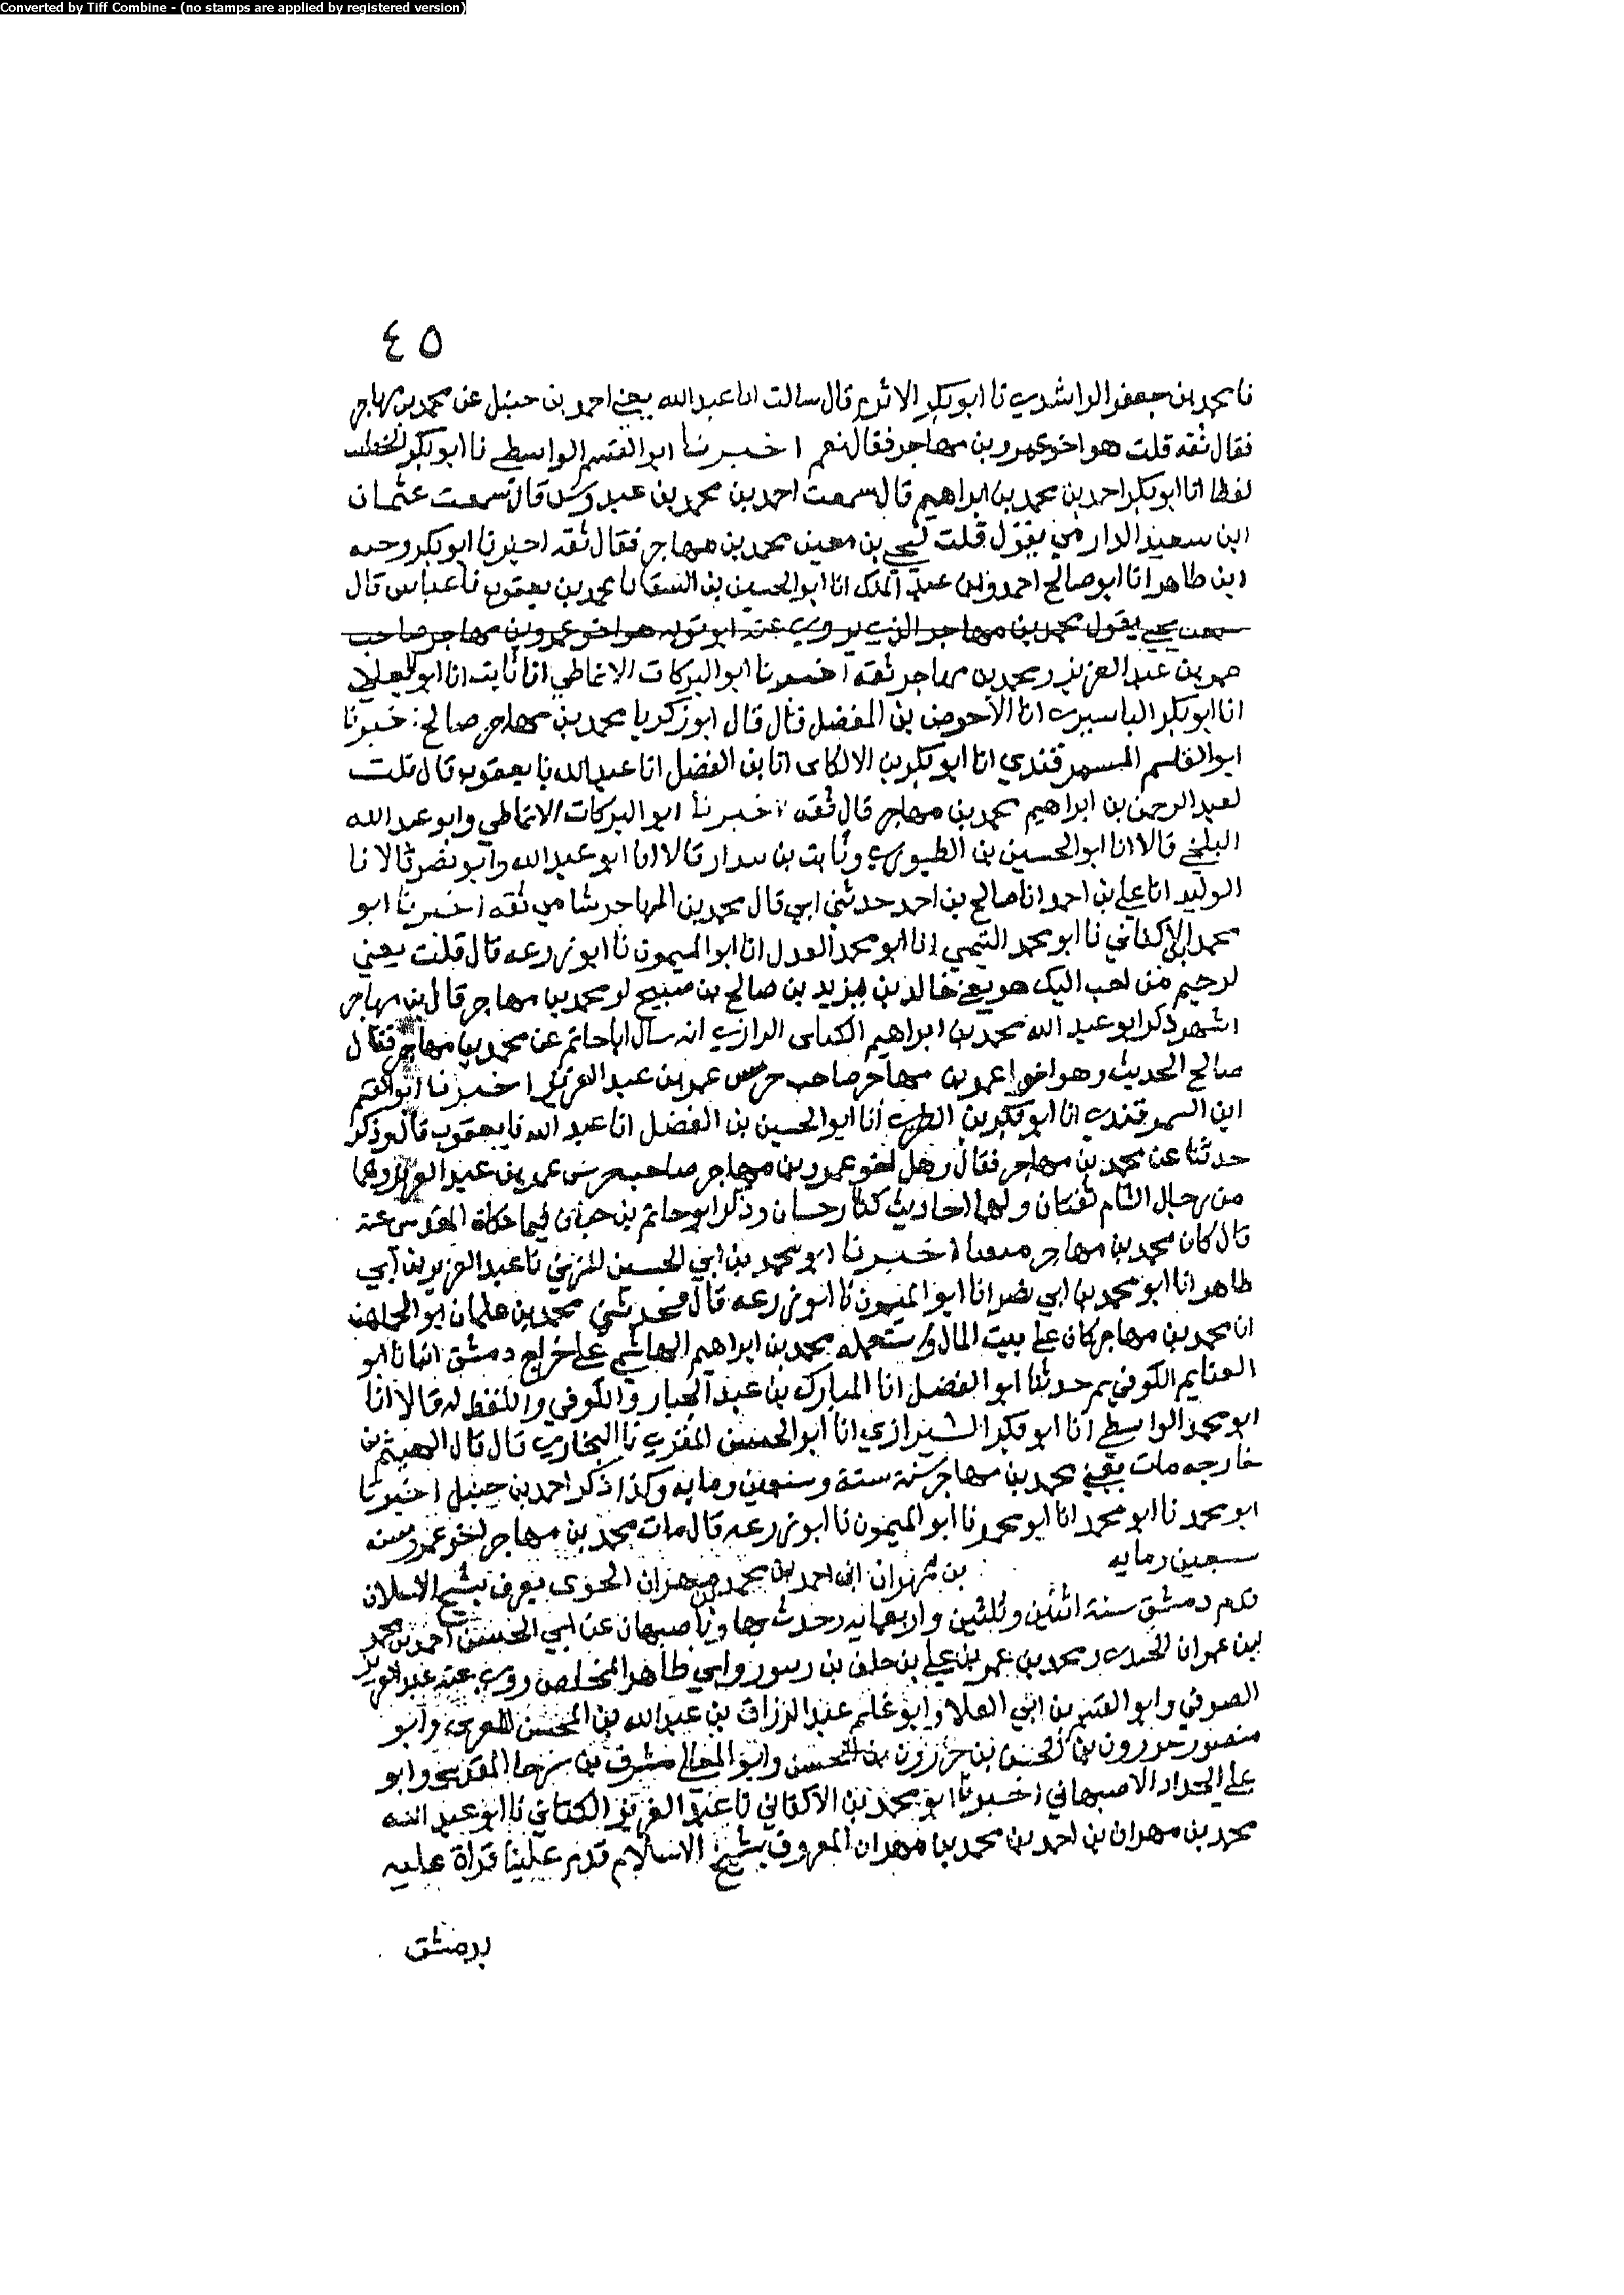 Converted by Tiff Combine - (no stamps are applied by registered version)
٤٥
نا محمد بن جعفر الراشدي نا ابو بكر الاثرم قال سالت ابا عبد الله يعني احمد بن حنبل عن محمد بن مهاجر
فقال ثقه قلت هو اخو عمرو بن مهاجر فقال نعم اخبرنا ابو القسم الواسطي نا ابو بكر الخطيب
لفظا انا ابو بكر احمد بن محمد بن ابراهيم قال سمعت احمد بن محمد بن عبدوس قال سمعت عثمان
ابن سعيد الدارمي يقول قلت ليحيى بن معين محمد بن مهاجر فقال ثقه اخبرنا ابو بكر وجيه
ابن طاهر انا ابو صالح احمد بن عبد الملك انا ابو الحسين بن السقا نا محمد بن يعقوب نا عباس قال
سمعت يحيى يقول محمد بن مهاجر الذي يروي عنه ابو توبه هو اخو عمرو بن مهاجر صاحب
عمر بن عبد العزيز ومحمد بن مهاجر ثقه اخبرنا ابو البركات الانماطي انا ثابت انا ابو العلا
انا ابو بكر الباسيري انا الاحوص بن المفضل قال قال ابو زكريا محمد بن مهاجر صالح اخبرنا
ابو القاسم السمرقندي انا ابو بكر بن الالكاى انا بن الفضل انا عبد الله نا يعقوب قال قلت
لعبد الرحمن بن ابراهيم محمد بن مهاجر قال ثقه اخبرنا ابو البركات الانماطي وابو عبد الله
البلخي قالا انا ابو الحسين بن الطيوري وثابت بن بندار قالا انا ابو عبد الله وابو نصر قالا نا
الوليد انا علي بن احمد انا صالح بن احمد حدثني ابي قال محمد بن المهاجر شامي ثقه اخبرنا ابو
محمد بن الاكفاني نا ابو محمد التميمي انا ابو محمد العدل انا ابو الميمون نا ابو زرعه قال قلت يعني
لرحيم من احب اليك هو يعني خالد بن يزيد بن صالح بن صبيح او محمد بن مهاجر قال بن مهاجر
اشهر ذكر ابو عبد الله محمد بن ابراهيم الكتاني الرازي انه سال ابا حاتم عن محمد بن مهاجر فقال
صالح الحديث وهو اخو عمرو بن مهاجر صاحب حرس عمر بن عبد العزيز اخبرنا ابو القسم
ابن السمرقندي انا ابو بكر بن الطبري انا ابو الحسين بن الفضل انا عبد الله نا يعقوب قال وذكر
حدثنا عن محمد بن مهاجر فقال وهل اخو عمرو بن مهاجر صاحب حرس عمر بن عبد العزيز وهما
من رجال الشام ثقتان ولهما احاديث كبار حسان وذكر ابو حاتم بن حبان فيما حكاه المقدسي عنه
قال كان محمد بن مهاجر متقنا اخبرنا ابو محمد بن ابي الحسين المزني نا عبد العزيز بن ابي
طاهر انا ابو محمد بن ابي نصر انا ابو الميمون نا ابو زرعه قال فحدثني محمد بن عثمان ابو الجماهر
ان محمد بن مهاجر كان على بيت المال واستعمله محمد بن ابراهيم الهاشمي على خراج دمشق انبانا ابو
الغنايم الكوفي ثم حدثنا ابو الفضل انا المبارك بن عبد الجبار والكوفي واللفظ له قالا انا
ابو محمد الواسطي انا ابو بكر الشيرازي انا ابو الحسن المقري نا البخاري قال قال الهيثم بن
خارجه مات يعني محمد بن مهاجر سنة ستة وسبعين ومايه وكذا ذكر احمد بن حنبل اخبرنا
ابو محمد نا ابو محمد انا ابو محمد نا ابو الميمون نا ابو زرعه قال مات محمد بن مهاجر اخو عمرو سنه
سبعين ومايه بن مهران بن احمد بن محمد بن مهران يعرف بشيخ الاسلام
قدم دمشق سنة اثنين وثلثين واربعمايه وحدث بها وباصبهان عن ابي الحسن احمد بن محمد
ابن عمران الجندي ومحمد بن عمر بن علي بن خلف بن وابي طاهر المخلص روى عنه عبد العزيز
الصوفي وابو القسم بن ابي العلا وابو غانم عبد الرزاق بن عبد الله بن المحسن المعري وابو
منصور بن الحسن بن وابو المعالي مشرف بن مرجا المقدسي وابو
علي الحداد الاصبهاني اخبرنا ابو محمد بن الاكفاني نا عبد العزيز الكتاني نا ابو عبد الله
محمد بن مهران بن احمد بن محمد بن مهران المعروف بشيخ الاسلام قدم علينا قراة عليه
بدمشق